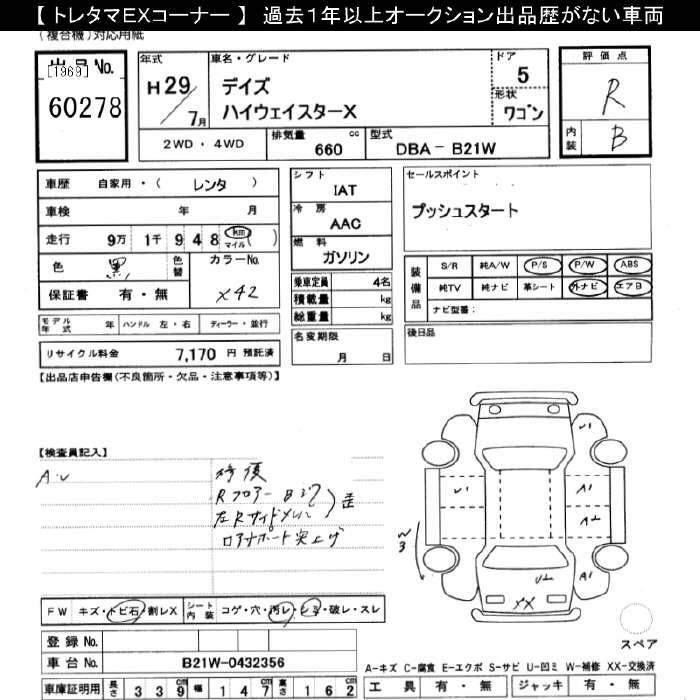 【 トレタマEXコーナー 】 過去１年以上オークション出品歴がない車両
(複合機)対応用紙
出品No.
[1969]
60278
年式
H29/7月
車名・グレード
デイズ
ハイウェイスターX
ドア
5
形状
ワゴン
2WD・4WD
排気量 cc
660
型式
DBA- B21W
評価点
R
内装
B
車歴 自家用・( レンタ )
車検 年 月
走行 9万 1千 9 4 8 km マイル ( )
色 黒 色替 カラーNo.
保証書 有・無 X42
モデル年式 年 ハンドル 左・右 ディーラー・並行
リサイクル料金 7,170 円 預託済
シフト
IAT
冷房
AAC
燃料
ガソリン
乗車定員 4名
積載量 kg
総重量 kg
名変期限
月 日
セールスポイント
プッシュスタート
装備品
S/R 純A/W P/S P/W ABS
純TV 純ナビ 革シート 外ナビ エアB
ナビ型番:
後日品
【出品店申告欄(不良箇所・欠品・注意事項等)】
【検査員記入】
修復
Rフロアー
U1
U1
A1
A1
W3
XX
FW キズ・トビ石・割レX シート内装 コゲ・穴・汚レ・シミ・破レ・スレ
登録No.
車台No. B21W-0432356
車庫証明用 長さ 3 3 9 幅 1 4 7 高さ 1 6 2
スペア
A-キズ C-腐食 E-エクボ S-サビ U-凹ミ W-補修 XX-交換済
工具 有・無 ジャッキ 有・無